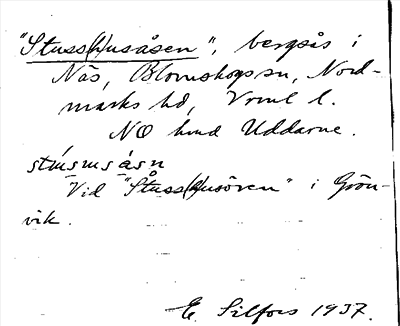 "Stuss(h)usåsen", bergås i
Näs, Blomskogs sn, Nord-
marks hd, Vrml l.
NO hmd Uddarne.
Vid "Stuss(h)usören" i Grön-
vik.
E. Silfors 1937.